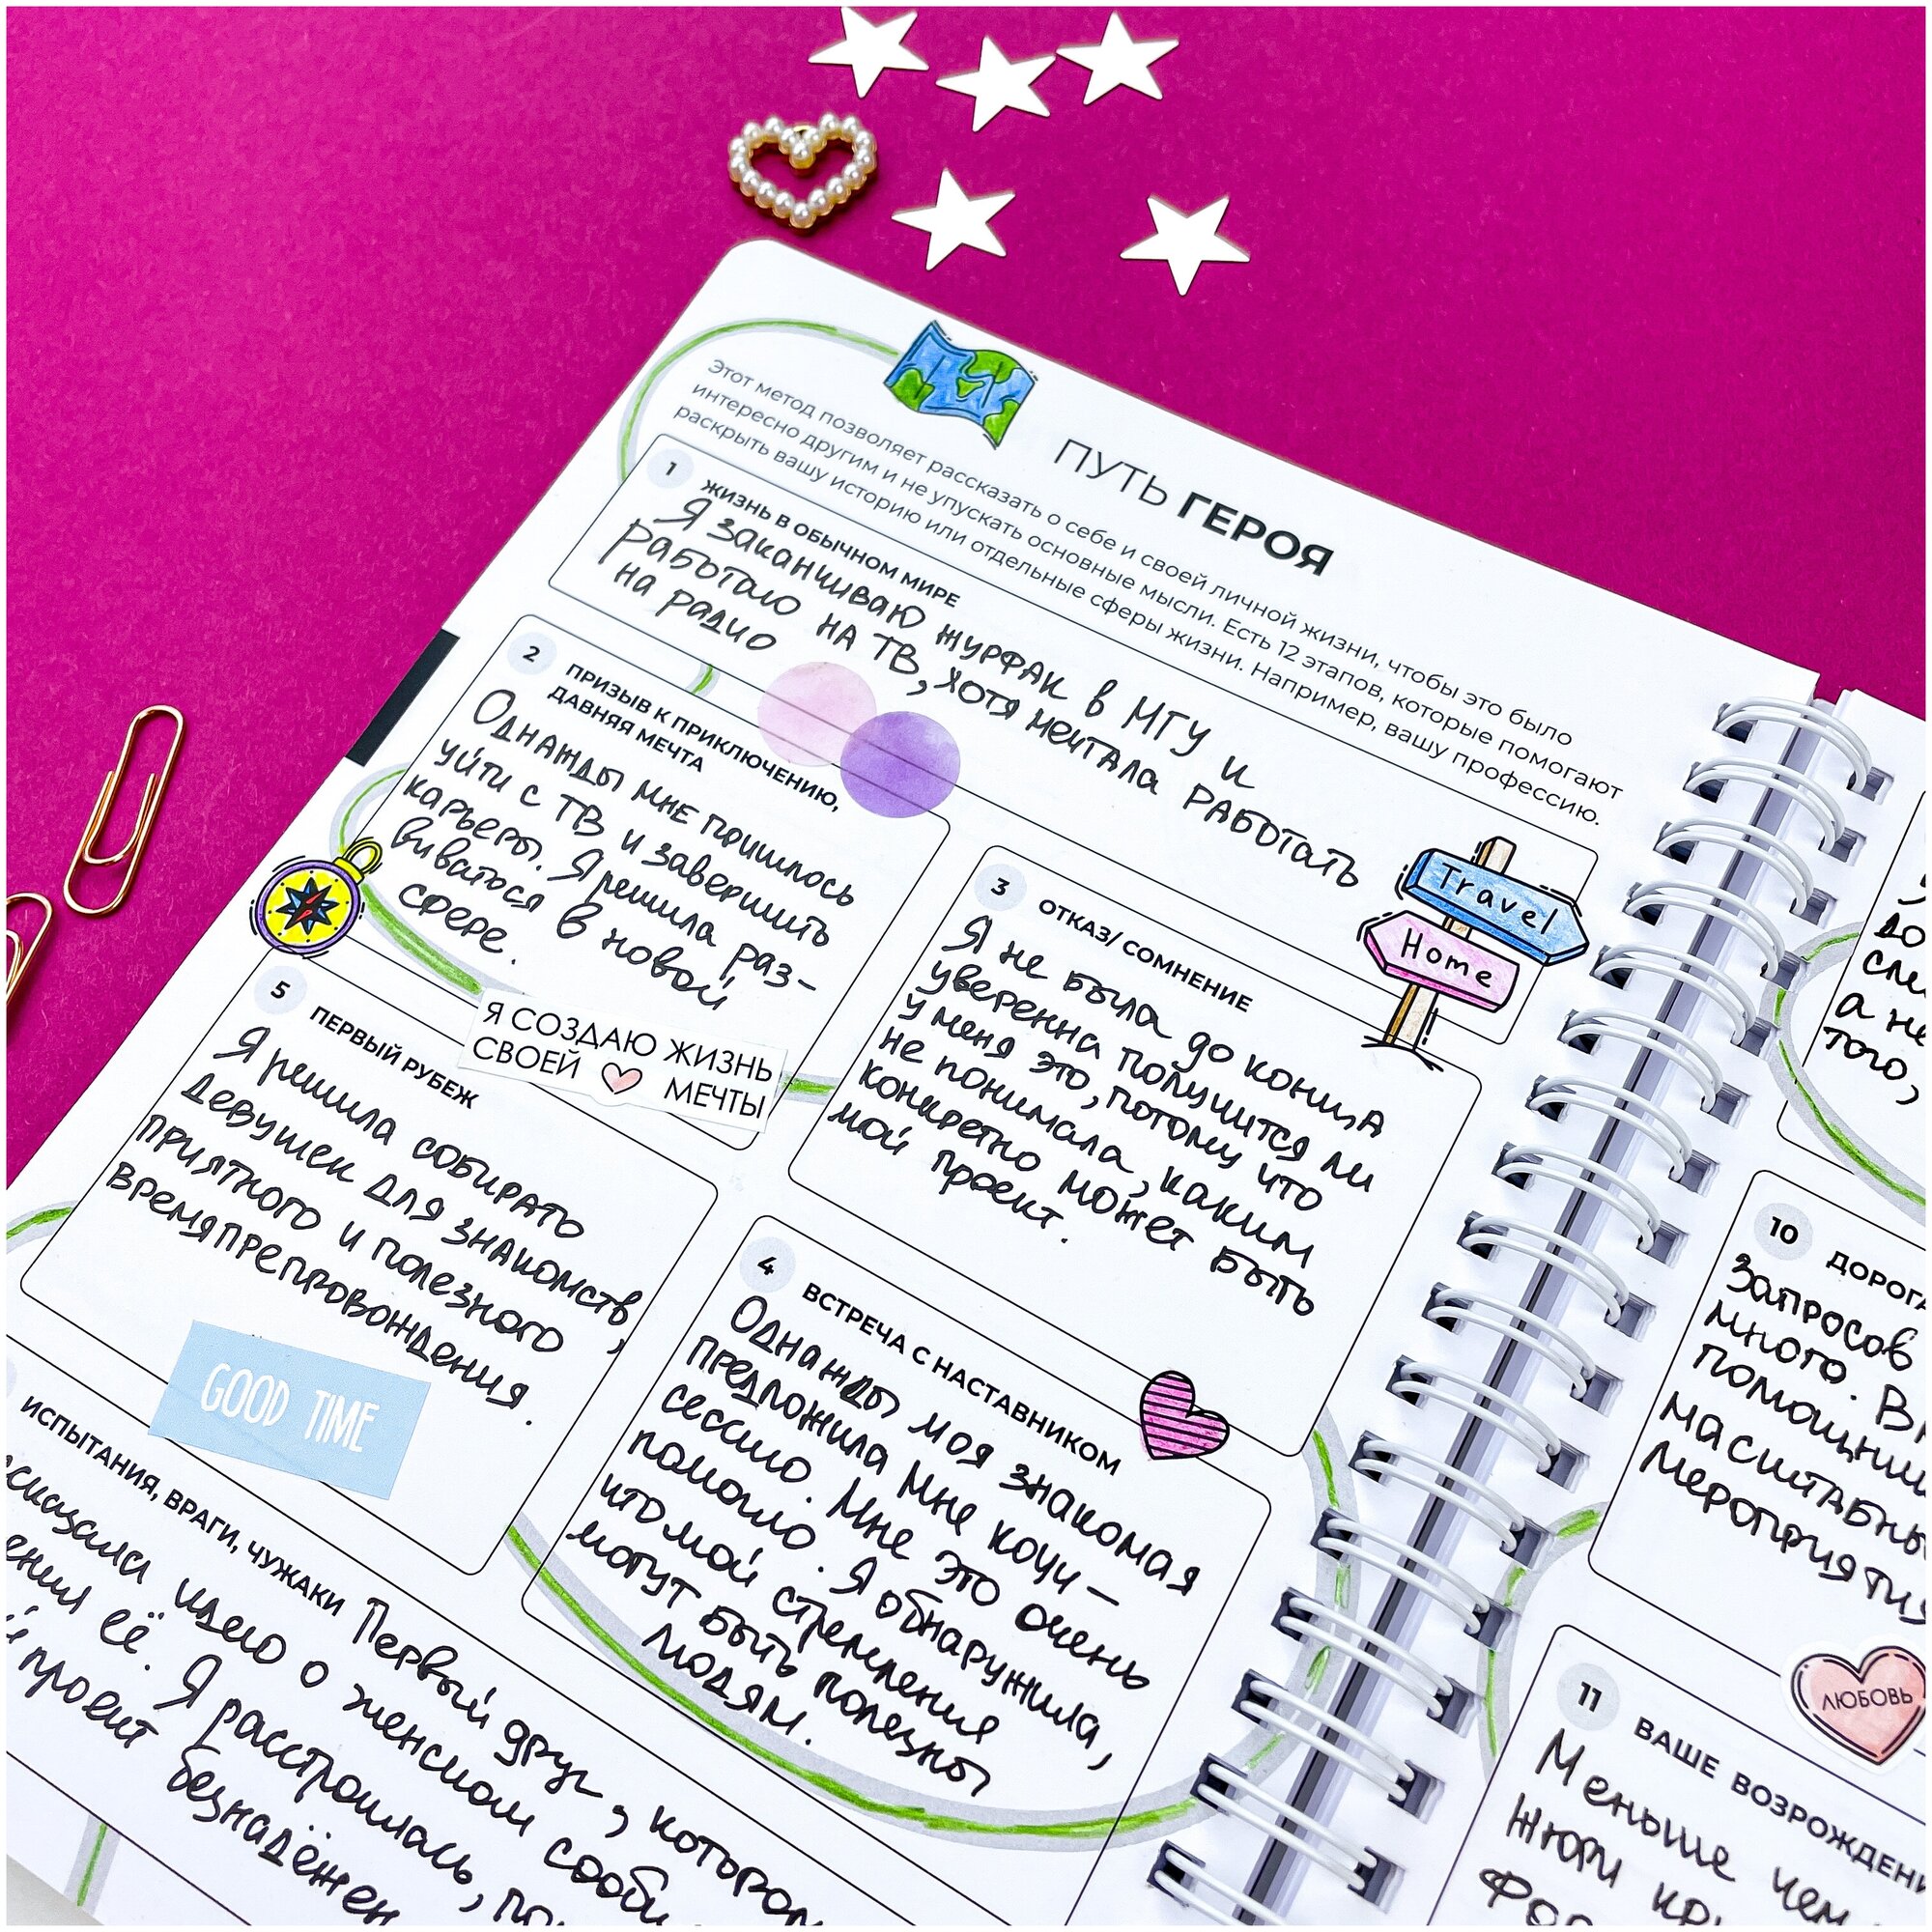 ПУТЬ ГЕРОЯ
Этот метод позволяет рассказать о себе и своей личной жизни, чтобы это было
интересно другим и не упускать основные мысли. Есть 12 этапов, которые помогают
раскрыть вашу историю или отдельные сферы жизни. Например, вашу профессию.
1 ЖИЗНЬ В ОБЫЧНОМ МИРЕ
Я заканчиваю журфак в МГУ и
работаю на ТВ, хотя мечтала работать
на радио
Travel
Home
2 ПРИЗЫВ К ПРИКЛЮЧЕНИЮ,
ДАВНЯЯ МЕЧТА
Однажды мне пришлось
уйти с ТВ и завершить
карьеру. Я решила раз-
виваться в новой
сфере.
Я СОЗДАЮ ЖИЗНЬ
СВОЕЙ МЕЧТЫ
3 ОТКАЗ/ СОМНЕНИЕ
Я не была до конца
уверенна получится ли
у меня это, потому что
не понимала, каким
конкретно может быть
мой проект.
4 ВСТРЕЧА С НАСТАВНИКОМ
Однажды моя знакомая
предложила мне коуч-
сессию. Мне это очень
помогло. Я обнаружила,
что мои стремления
могут быть полезны
людям.
5 ПЕРВЫЙ РУБЕЖ
Я решила собирать
девушек для знакомств,
приятного и полезного
времяпрепровождения.
GOOD TIME
ИСПЫТАНИЯ, ВРАГИ, ЧУЖАКИ
Первый друг, котором
идею о женском сооб
её. Я расстроилась,
проект безнадёжен
10 ДОРОГА
Запросов
много. В
помощни
масштабны
мероприяти
11 ВАШЕ ВОЗРОЖДЕНИ
ЛЮБОВЬ
Меньше чем